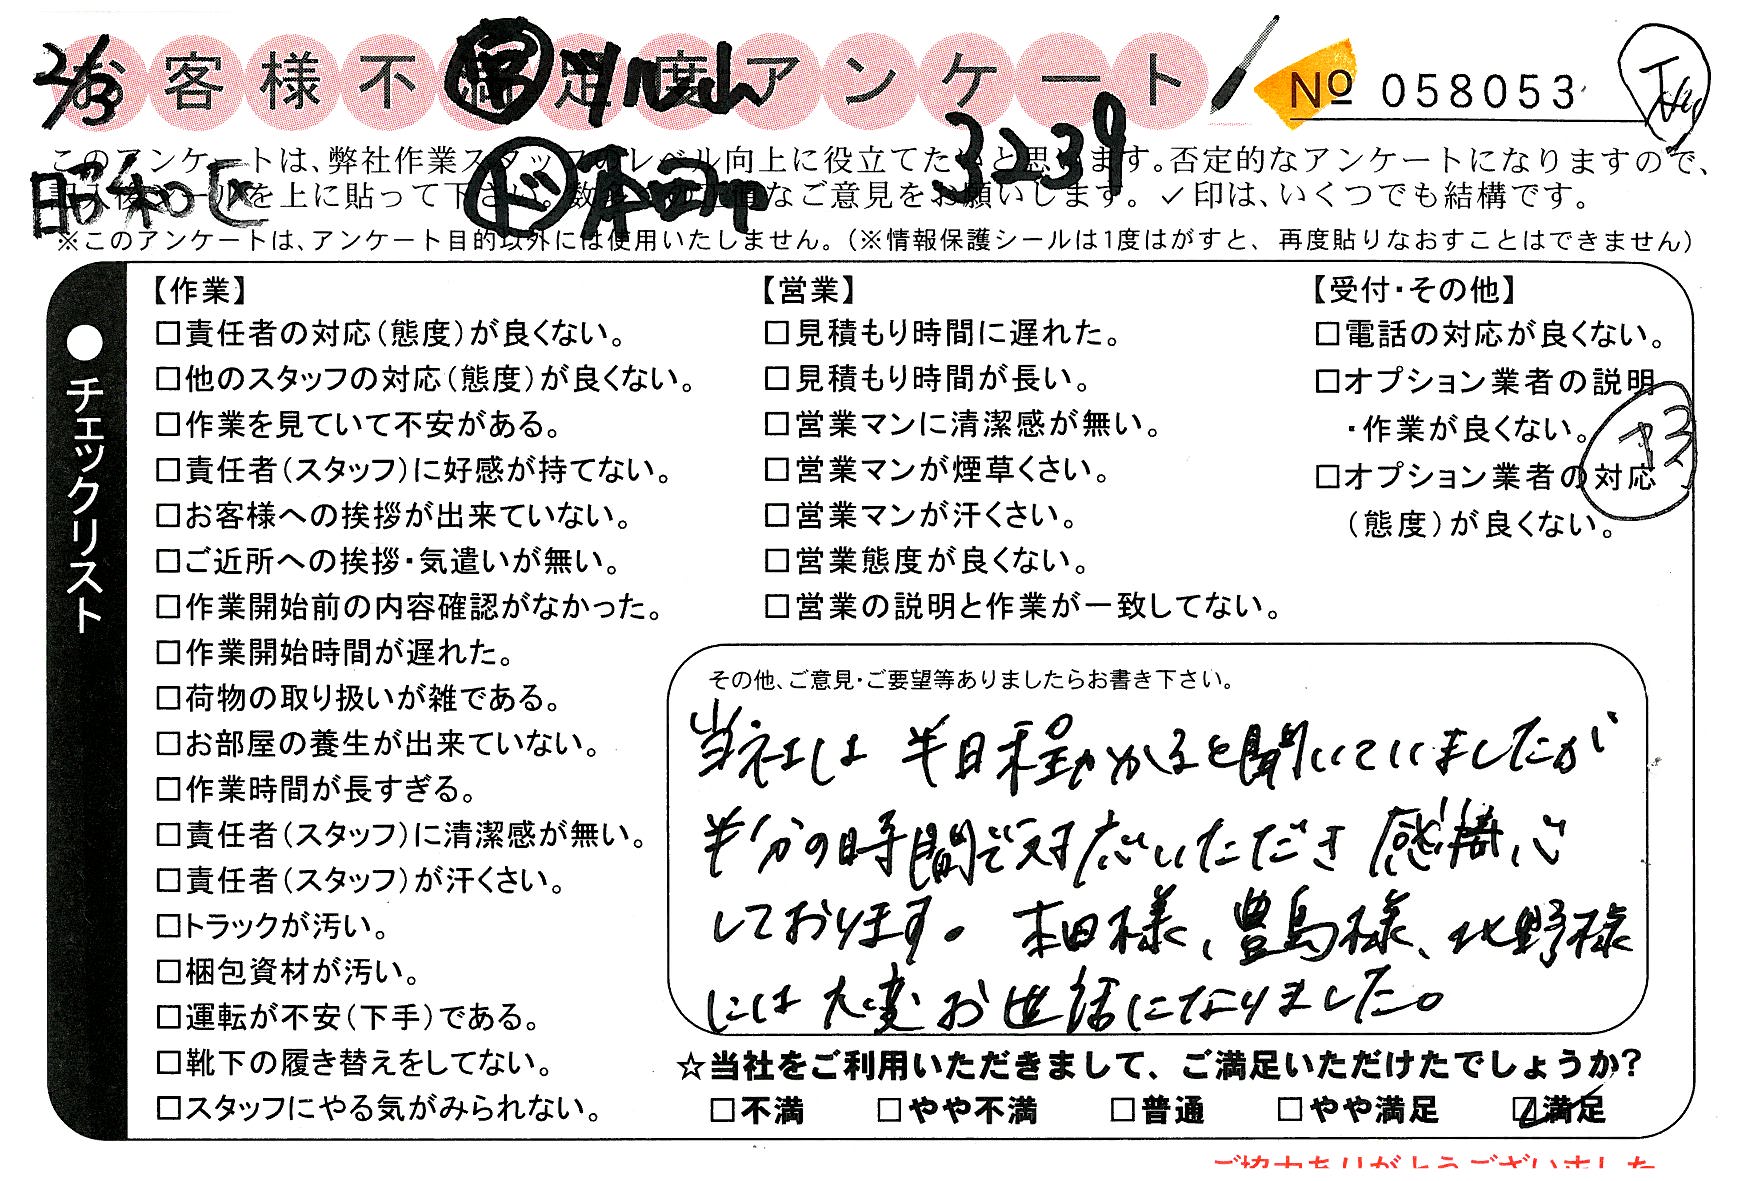 2/3
お客様不満足度アンケート
№ 058053
3239
このアンケートは、弊社作業スタッフのレベル向上に役立てたいと思います。否定的なアンケートになりますので、
昭和区
ド 本田
記入後シールを上に貼って下さい。数多くの正直なご意見をお願いします。✓印は、いくつでも結構です。
※このアンケートは、アンケート目的以外には使用いたしません。(※情報保護シールは1度はがすと、再度貼りなおすことはできません)
●チェックリスト
【作業】
□責任者の対応(態度)が良くない。
□他のスタッフの対応(態度)が良くない。
□作業を見ていて不安がある。
□責任者(スタッフ)に好感が持てない。
□お客様への挨拶が出来ていない。
□ご近所への挨拶・気遣いが無い。
□作業開始前の内容確認がなかった。
□作業開始時間が遅れた。
□荷物の取り扱いが雑である。
□お部屋の養生が出来ていない。
□作業時間が長すぎる。
□責任者(スタッフ)に清潔感が無い。
□責任者(スタッフ)が汗くさい。
□トラックが汚い。
□梱包資材が汚い。
□運転が不安(下手)である。
□靴下の履き替えをしてない。
□スタッフにやる気がみられない。
【営業】
□見積もり時間に遅れた。
□見積もり時間が長い。
□営業マンに清潔感が無い。
□営業マンが煙草くさい。
□営業マンが汗くさい。
□営業態度が良くない。
□営業の説明と作業が一致してない。
【受付・その他】
□電話の対応が良くない。
□オプション業者の説明
・作業が良くない。
□オプション業者の対応
(態度)が良くない。
その他、ご意見・ご要望等ありましたらお書き下さい。
当社は 半日程かかると聞いていましたが
半分の時間で対応いただき 感謝
しております。本田様、豊島様、北野様
には大変お世話になりました。
☆当社をご利用いただきまして、ご満足いただけたでしょうか?
□不満 □やや不満 □普通 □やや満足 ☑満足
ご協力ありがとうございました